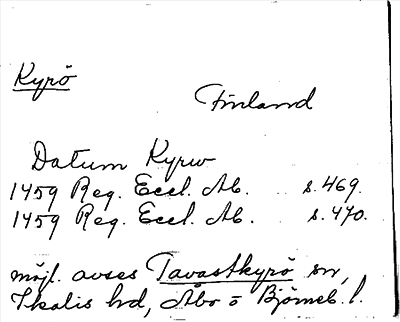 Kyrö
Finland
Datum Kyrw
1459 Reg. Eccl. Ab. s. 469.
1459 Reg. Eccl. Ab. s. 470.
möjl. avses Tavastkyrö sn,
Ikalis hd, Åbo o Björneb. l.